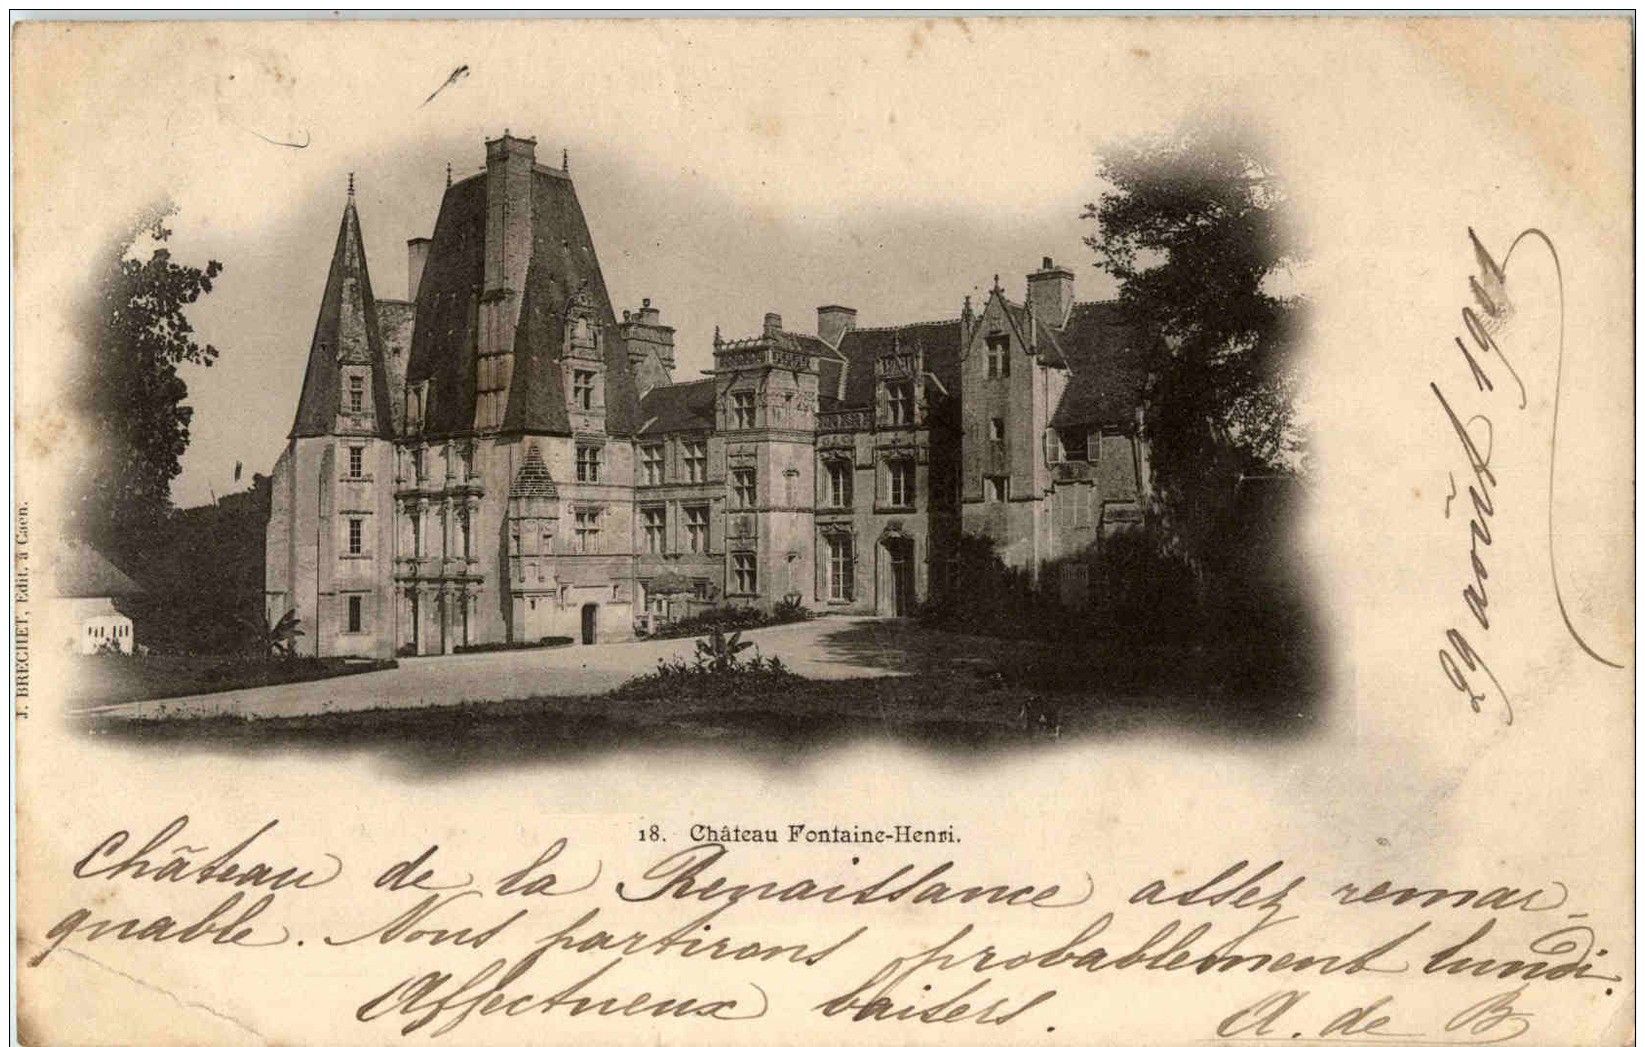 J. BRECHET, Edit. à Caen.
29 août 1901
18. Château Fontaine-Henri.
Château de la Renaissance assez remar-
quable. Nous partirons probablement lundi.
Affectueux baisers. A. de B